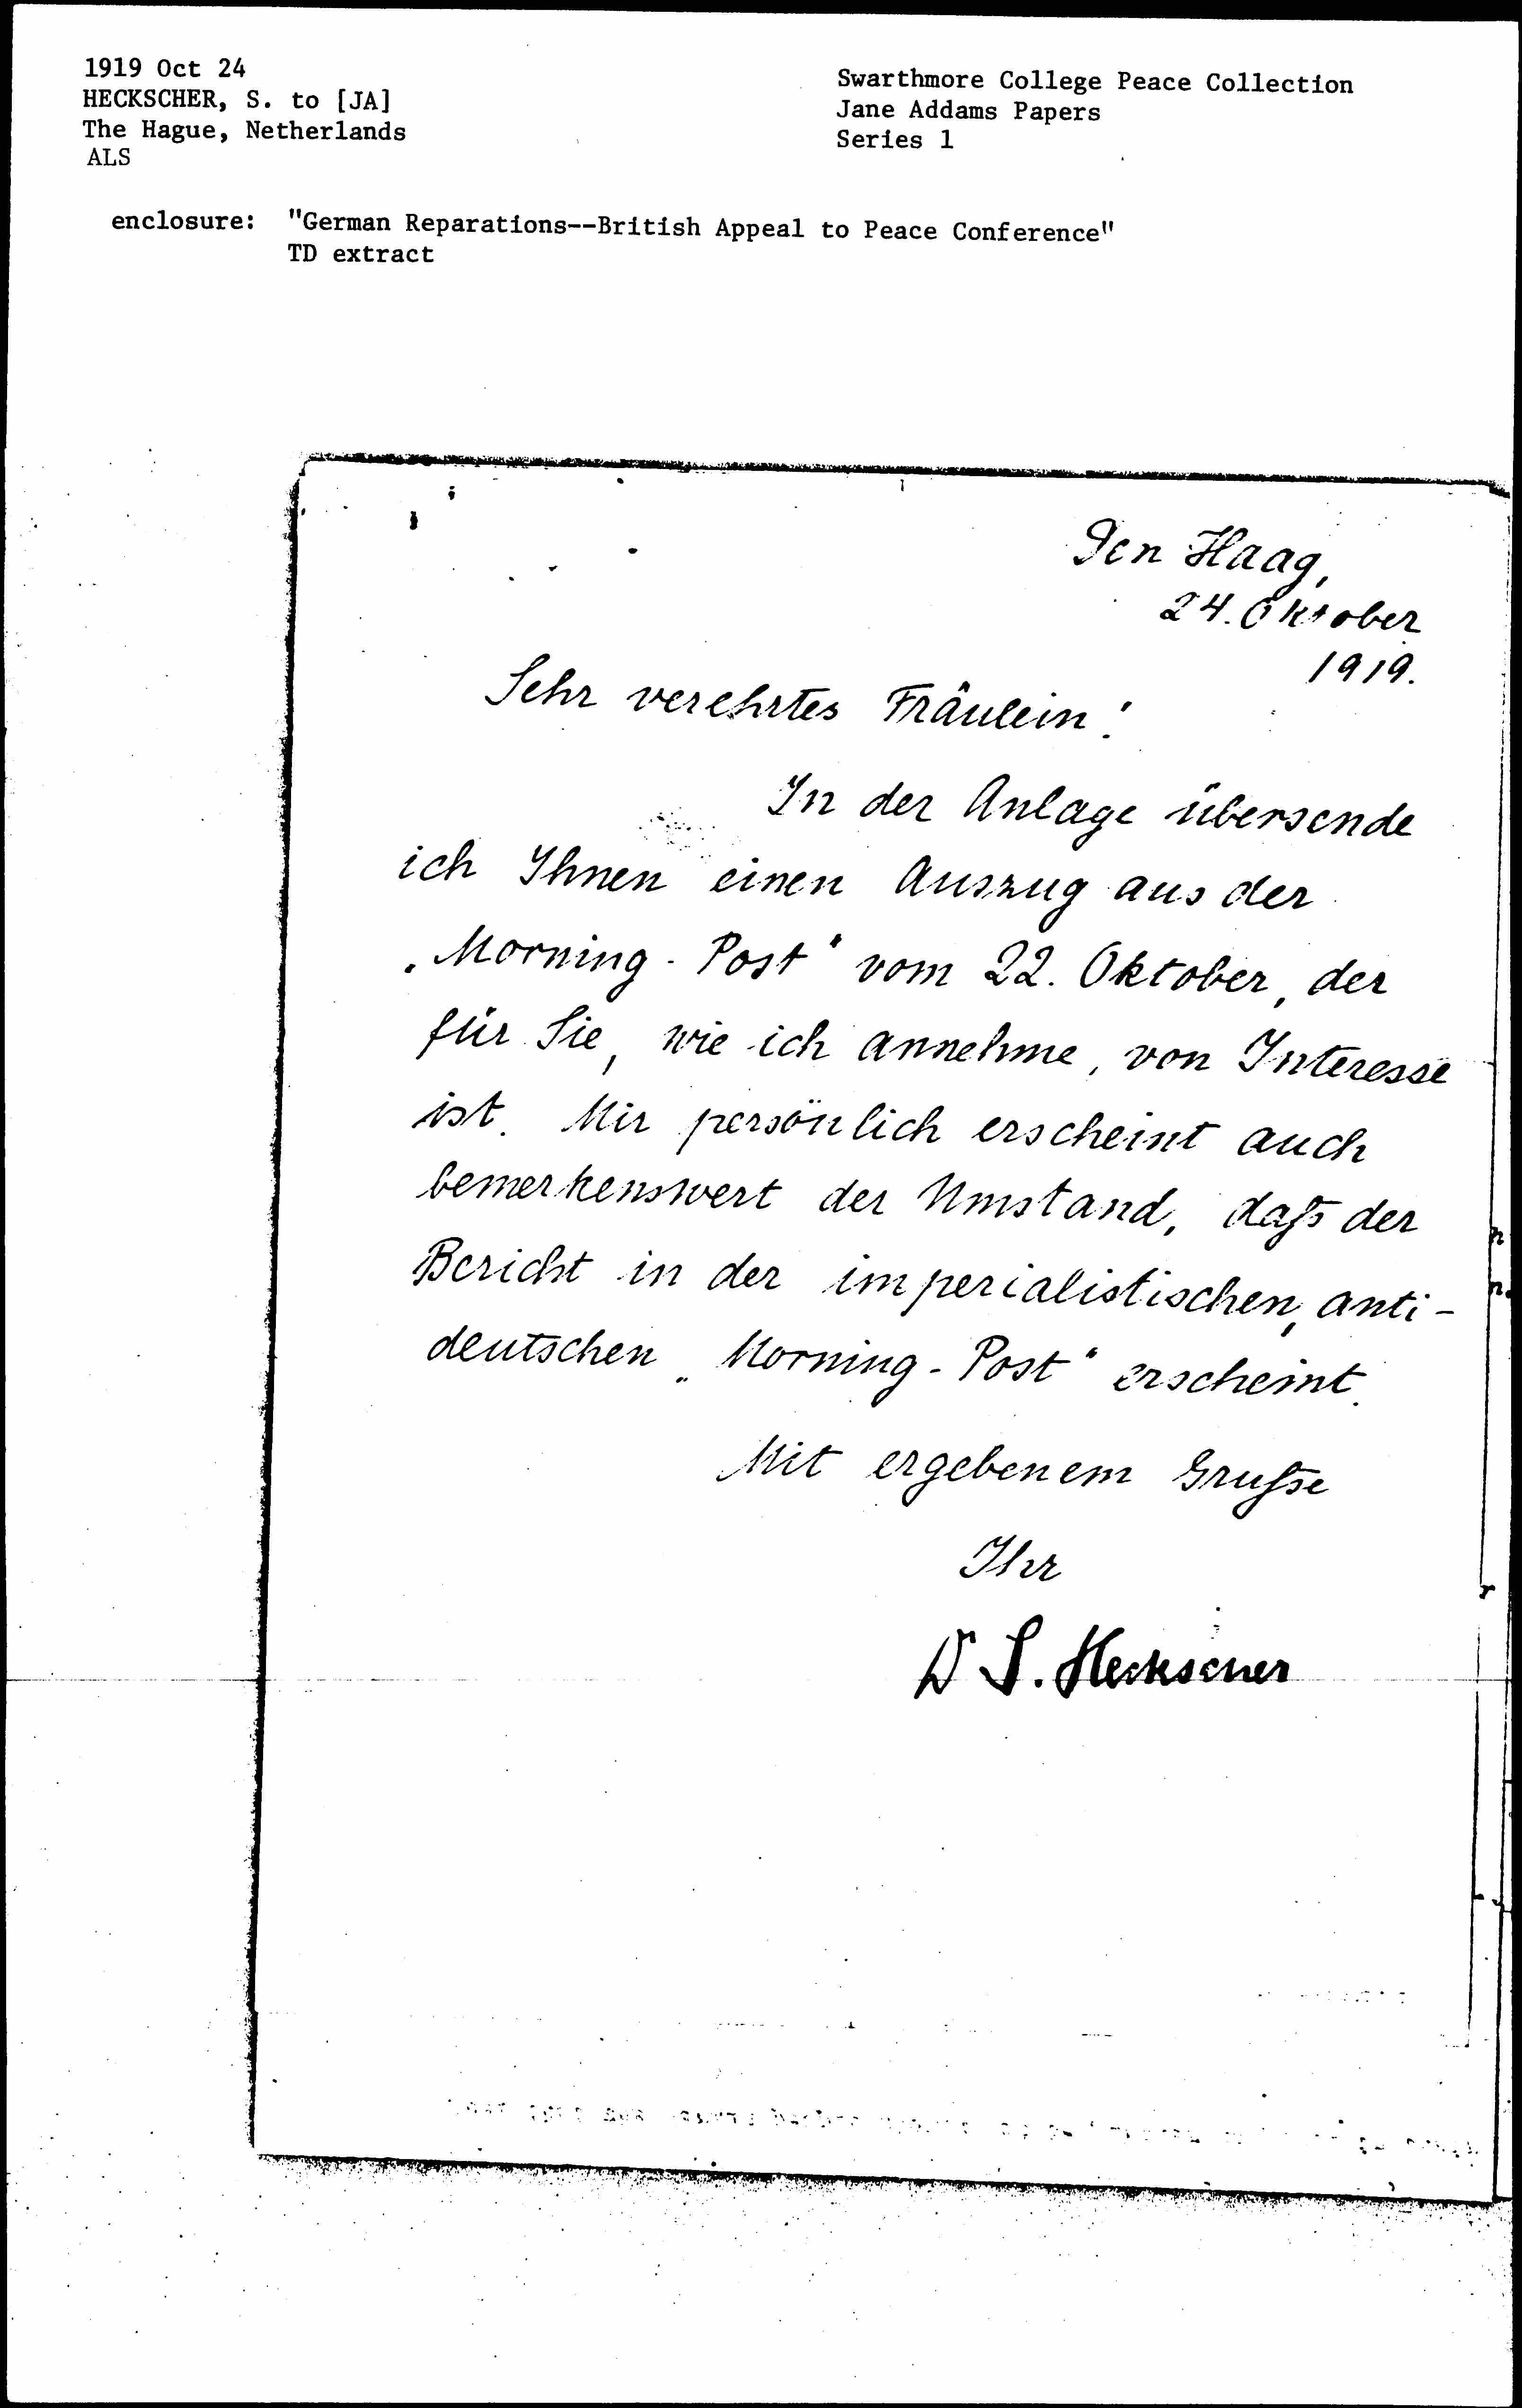 1919 Oct 24
HECKSCHER, S. to [JA]
The Hague, Netherlands
ALS
Swarthmore College Peace Collection
Jane Addams Papers
Series 1
enclosure: "German Reparations--British Appeal to Peace Conference"
TD extract
Den Haag,
24. Oktober
1919.
Sehr verehrtes Fräulein!
In der Anlage übersende
ich Ihnen einen Auszug aus der
„Morning-Post“ vom 22. Oktober, der
für Sie, wie ich annehme, von Interesse
ist. Mir persönlich erscheint auch
bemerkenswert der Umstand, daß der
Bericht in der imperialistischen, anti-
deutschen „Morning-Post“ erscheint.
Mit ergebenem Gruße
Ihr
Dr S. Heckscher